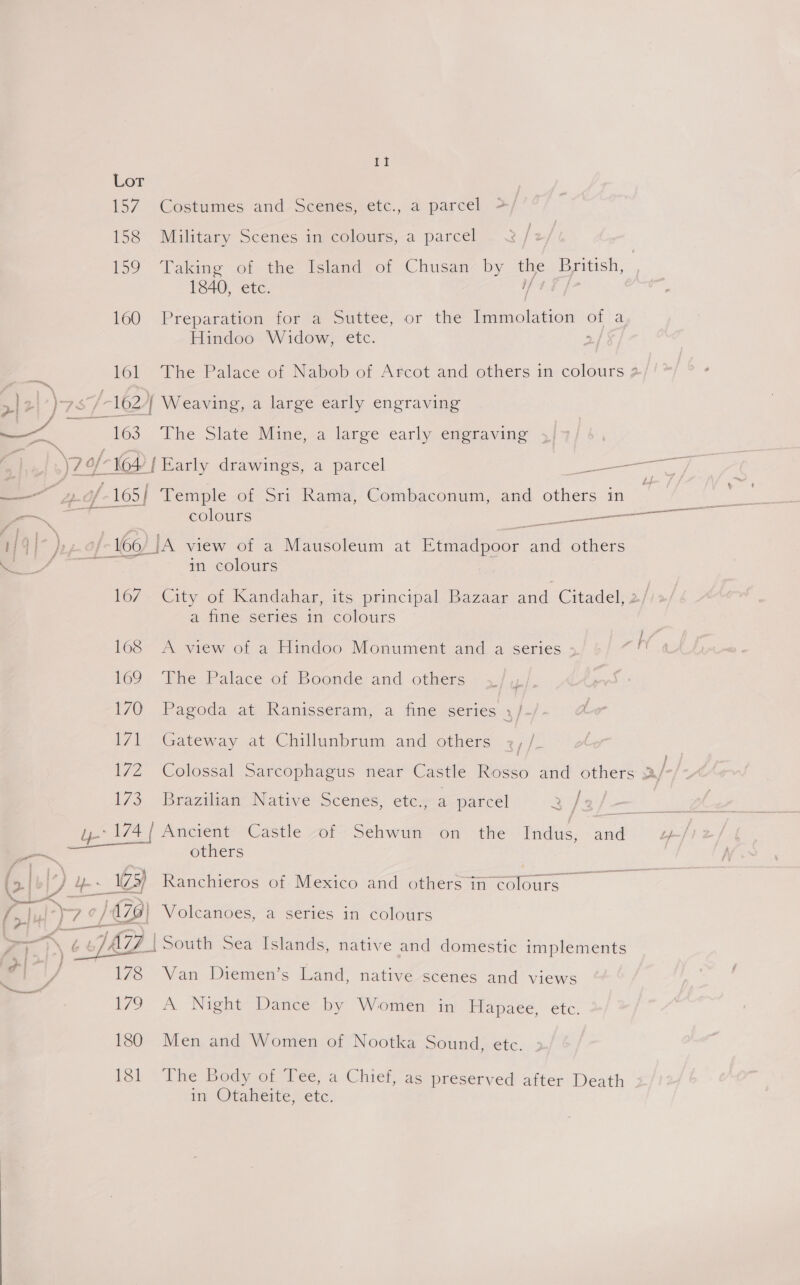 11
Lot
157 Costumes and Scenes, etc., a parcel
158 Military Scenes in colours, a parcel
159 Taking of the Island of Chusan by the British,
1840, etc.
160 Preparation for a Suttee, or the Immolation of a
Hindoo Widow, etc.
161 The Palace of Nabob of Arcot and others in colours
162 Weaving, a large early engraving
163 The Slate Mine, a large early engraving
164 Early drawings, a parcel
165 Temple of Sri Rama, Combaconum, and others in
colours
166 A view of a Mausoleum at Etmadpoor and others
in colours
167 City of Kandahar, its principal Bazaar and Citadel,
a fine series in colours
168 A view of a Hindoo Monument and a series
169 The Palace of Boonde and others
170 Pagoda at Ranisseram, a fine series
171 Gateway at Chillunbrum and others
172 Colossal Sarcophagus near Castle Rosso and others
173 Brazilian Native Scenes, etc., a parcel
174 Ancient Castle of Sehwun on the Indus, and
others
175 Ranchieros of Mexico and others in colours
176 Volcanoes, a series in colours
177 South Sea Islands, native and domestic implements
178 Van Diemen's Land, native scenes and views
179 A Night Dance by Women in Hapaee, etc.
180 Men and Women of Nootka Sound, etc.
181 The Body of Tee, a Chief, as preserved after Death
in Otaheite, etc.